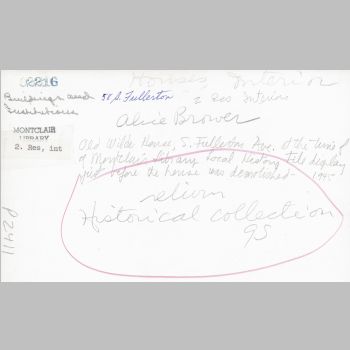 02216
Houses Interior
Buildings and
Institutions
58 S. Fullerton
2 Res Interiors
MONTCLAIR
LIBRARY
2. Res, int
Alice Brower
Old Wilde House, S. Fullerton Ave. at the time of
a Montclair library local history file display
just before the house was demolished - 194
return
Historical collection
95
P2411